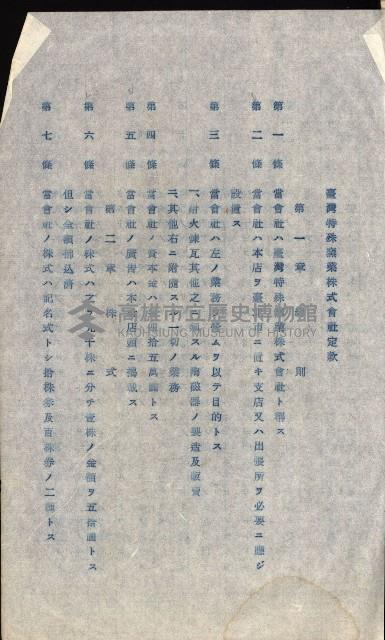 臺灣特殊窯業株式會社定款
第一章 總則
第一條 當會社ハ臺灣特殊窯業株式會社ト稱ス
第二條 當會社ハ本店ヲ臺 市ニ置キ支店又ハ出張所ヲ必要ニ應ジ
設置ス
第三條 當會社ハ左ノ業務ヲ營ムヲ以テ目的トス
一、耐火煉瓦其他之ニ類スル陶磁器ノ製造及販賣
二、其他右ニ附隨スル一切ノ業務
第四條 當會社ノ資本金ハ 四拾五萬圓トス
第五條 當會社ノ廣告ハ本店 店頭ニ揭載ス
第二章 株式
第六條 當會社ノ株式ハ之ヲ九千株ニ分チ壹株ノ金額ヲ五拾圓トス
但シ全額拂込濟
第七條 當會社ノ株式ハ記名式トシ拾株券及百株券ノ二種トス
高雄市立歷史博物館
KAOHSIUNG MUSEUM OF HISTORY